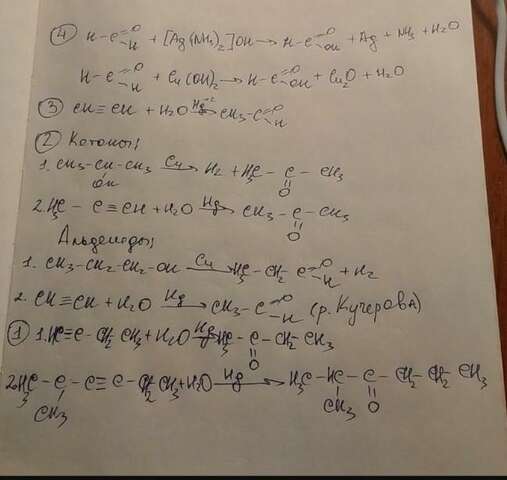 ④ H-C=O H + [Ag(NH₃)₂]OH → H-C=O OH + Ag + NH₃ + H₂O
H-C=O H + Cu(OH)₂ → H-C=O OH + Cu₂O + H₂O
③ CH≡CH + H₂O Hg⁺² → CH₃-C=O H
② Кетоны:
1. CH₃-CH-CH₃ Cu → H₂ + H₃C - C - CH₃
OH O
2. H₃C - C≡CH + H₂O Hg → CH₃ - C - CH₃
O
Альдегиды:
1. CH₃-CH₂-CH₂-OH Cu → H₃C-CH₂ C=O H + H₂
2. CH≡CH + H₂O Hg → CH₃-C=O H (р. Кучерова)
① 1. HC≡C-CH₂ CH₃ + H₂O Hg → H₃C - C - CH₂ CH₃
O
2. H₃C - C - C≡C-CH₂ CH₃ + H₂O Hg → H₃C - HC - C - CH₂ - CH₂ CH₃
CH₃ CH₃ O